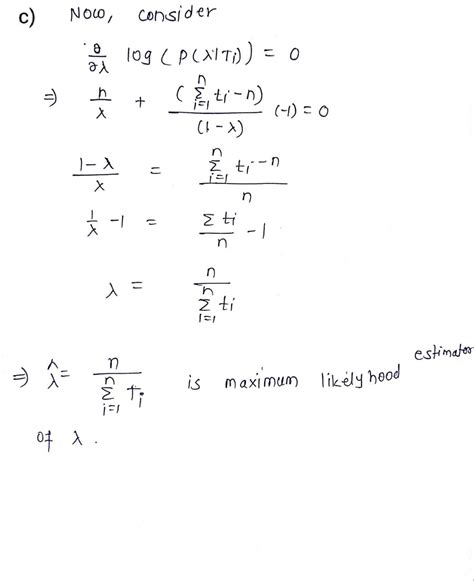 c) Now, consider
∂/∂λ log(P(λ|Ti)) = 0
⇒ n/λ + (Σ_{i=1}^{n} ti - n)/(1-λ) (-1) = 0
(1-λ)/λ = (Σ_{i=1}^{n} ti - n)/n
1/λ - 1 = Σti/n - 1
λ = n/(Σ_{i=1}^{n} ti)
⇒ λ̂ = n/(Σ_{i=1}^{n} Ti) is maximum likelyhood estimator
of λ.